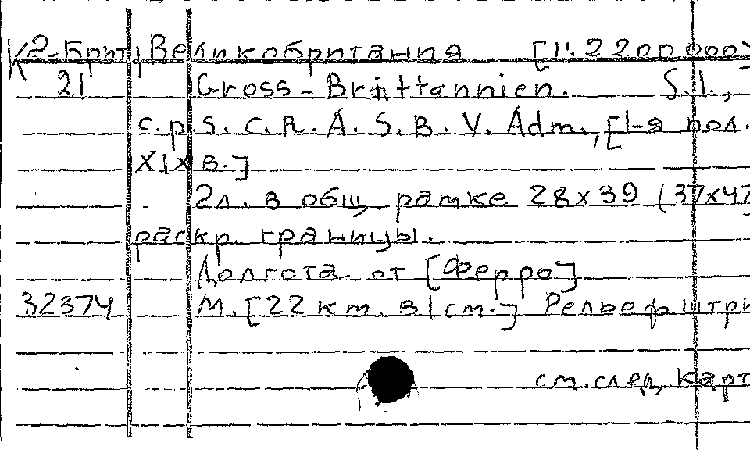 К2-Брит Великобритания [1:2200000]
21 Gross-Brittannien. S.l.,
c.p.S.C.R.A.S.B.V. Adm., [1-я пол.
XIX в.]
2л. в общ. рамке 28x39 (37x47
раскр. границы.
Долгота от [Ферро]
32374 М. [22 км. в 1 см.] Рельеф штри
см. след. карт